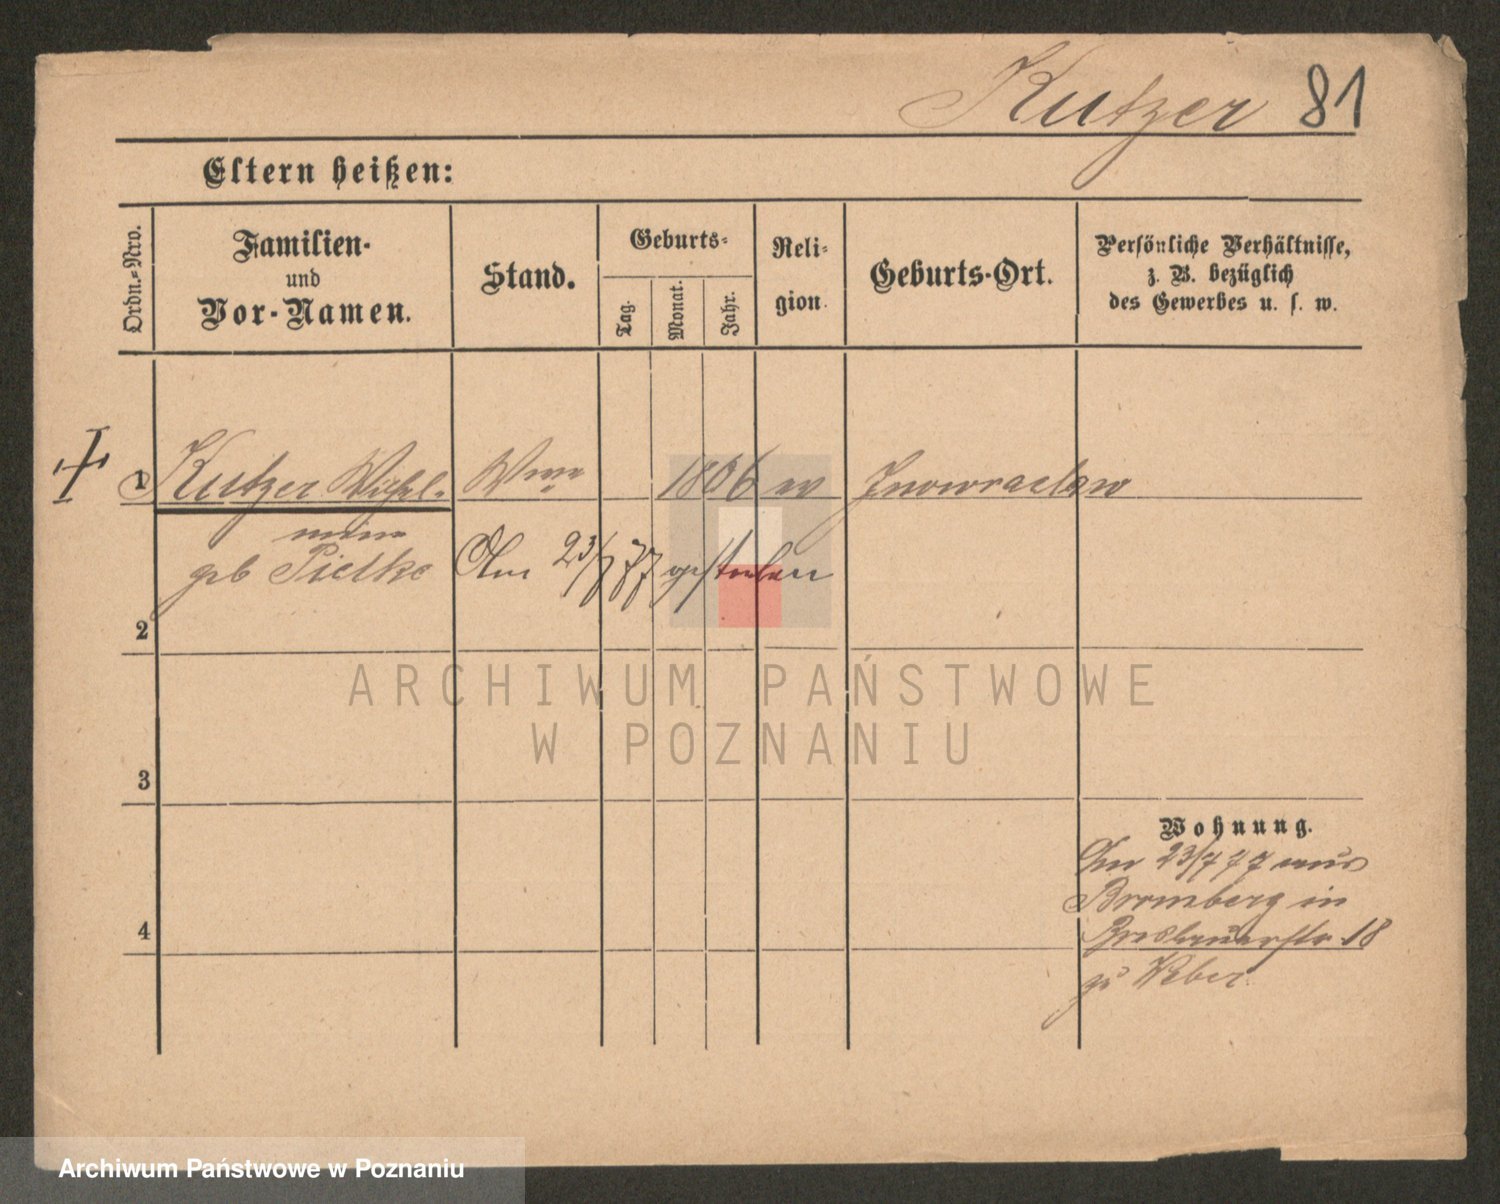 Kutzer 81
Eltern heißen:
Ordn.-Nro.
Familien-
und
Vor-Namen.
Stand.
Geburts-
Tag.
Monat.
Jahr.
Reli-
gion.
Geburts-Ort.
Persönliche Verhältnisse,
z. B. bezüglich
des Gewerbes u. s. w.
1 Kutzer Wilhel- Wwe 1806 ev Inowraclaw
mine
geb Pielke Am 23/7 77 gestorben
2
ARCHIWUM PAŃSTWOWE
W POZNANIU
3
Wohnung.
Am 23/7 77 aus
Bromberg in
18
4
zu Weber
Archiwum Państwowe w Poznaniu